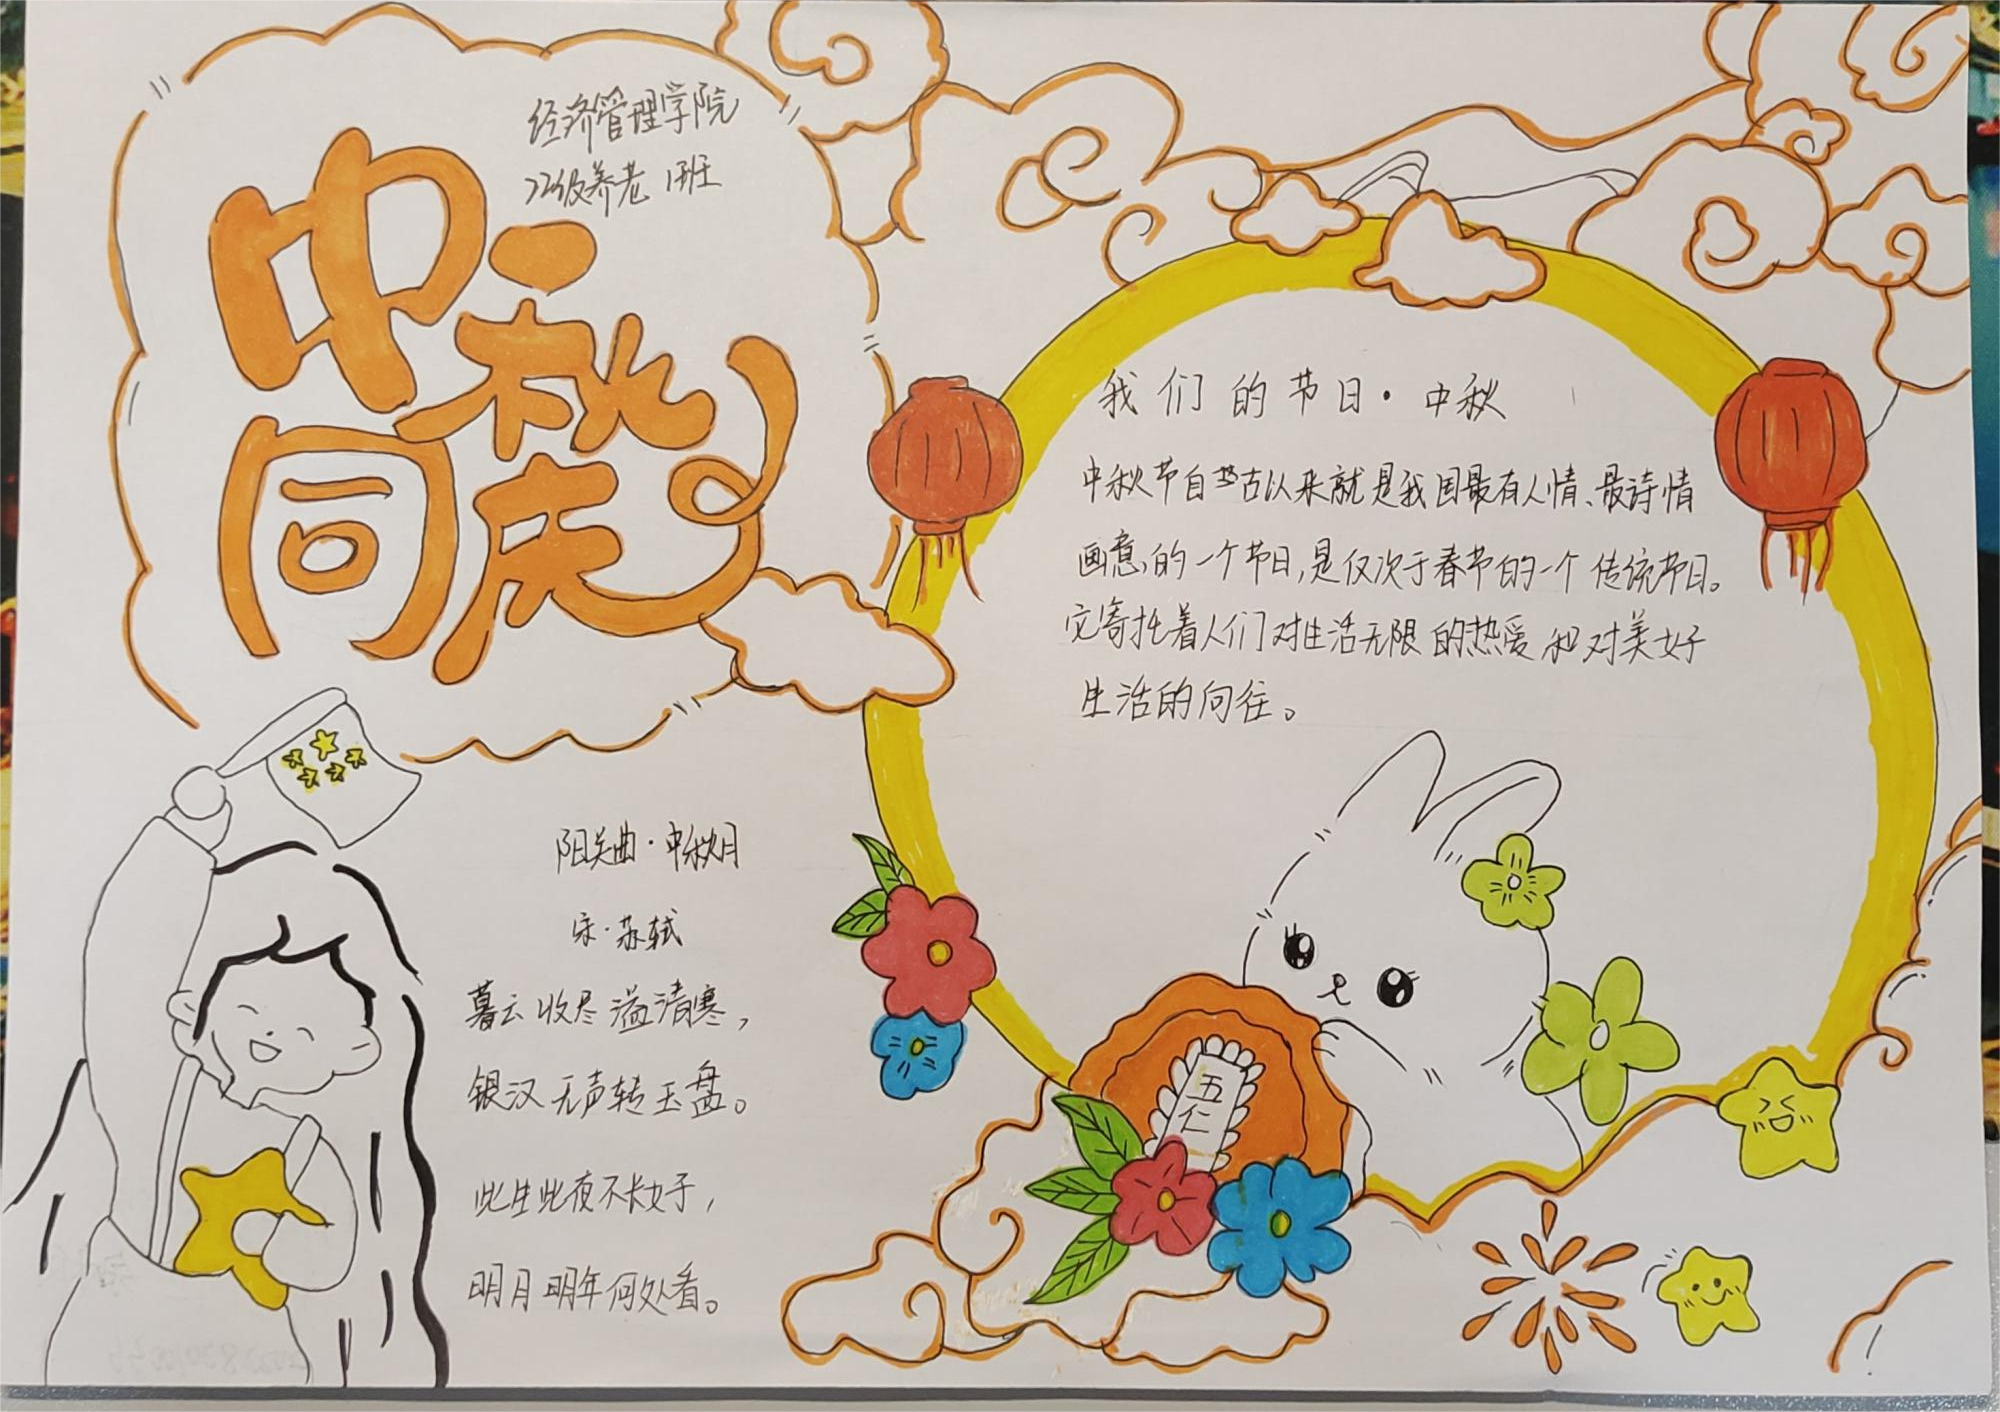 经济管理学院
22级养老1班
中秋
同庆
我们的节日·中秋
中秋节自古以来就是我国最有人情、最诗情
画意的一个节日,是仅次于春节的一个传统节日。
它寄托着人们对生活无限的热爱和对美好
生活的向往。
阳关曲·中秋月
宋·苏轼
暮云收尽溢清寒,
银汉无声转玉盘。
此生此夜不长好,
明月明年何处看。
五仁